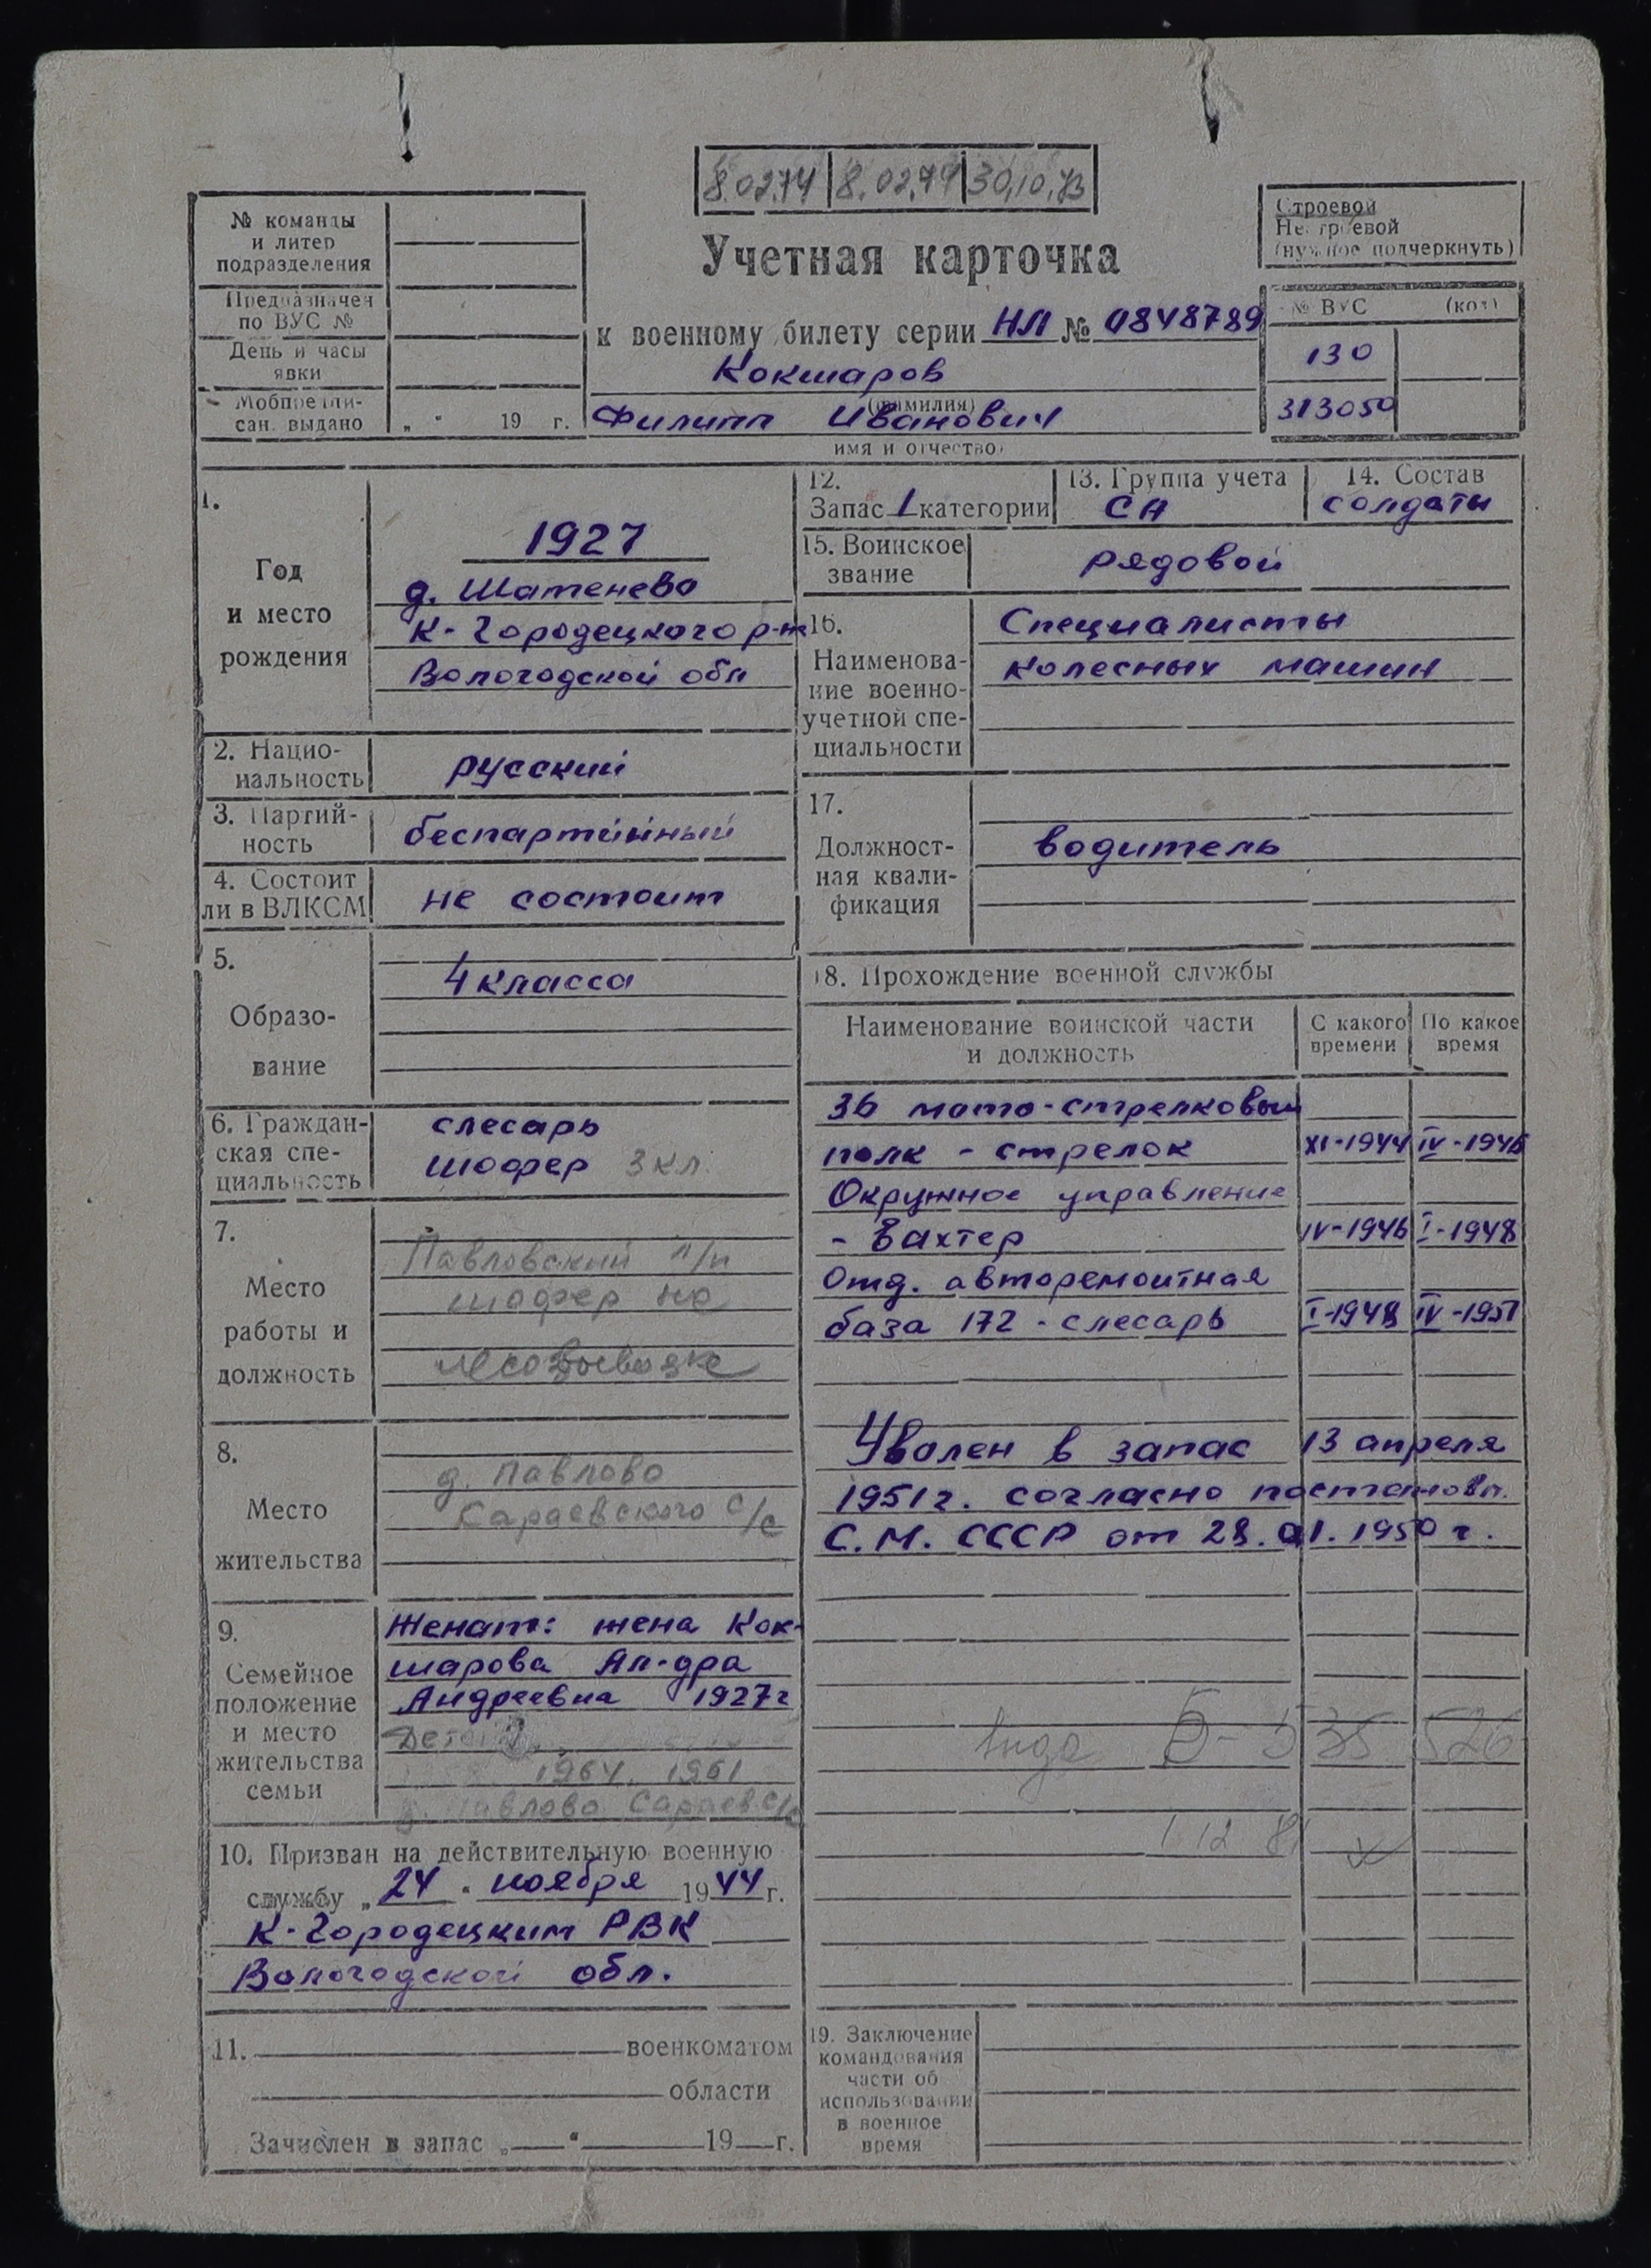 8.02.74 8.02.79 30.10.73
№ команды
и литер
подразделения
Предназначен
по ВУС №
День и часы
явки
Мобпредпи-
сан. выдано „ " 19 г.
Учетная карточка
к военному билету серии НЛ № 0848789
Кокшаров
(фамилия)
Филипп Иванович
имя и отчество)
Строевой
Нестроевой
(нужное подчеркнуть)
№ ВУС (код)
130
313050
1.
Год
и место
рождения
1927
д. Шатенево
К-Городецкого р-н
Вологодской обл
2. Нацио-
нальность
русский
3. Партий-
ность
беспартийный
4. Состоит
ли в ВЛКСМ
не состоит
5.
Образо-
вание
4 класса
6. Граждан-
ская спе-
циальность
слесарь
шофер 3 кл.
7.
Место
работы и
должность
Павловский л/п
шофер на
лесовывозке
8.
Место
жительства
д. Павлово
Сараевского с/с
9.
Семейное
положение
и место
жительства
семьи
Женат: жена Кок-
шарова Ал-дра
Андреевна 1927 г
Дети
1964, 1961
Павлово Сараев. с/с
10. Призван на действительную военную
службу „ 24 " ноября 1944 г.
К-Городецким РВК
Вологодской обл.
11. военкоматом
области
Зачислен в запас „ " 19 г.
12.
Запас 1 категории
13. Группа учета
СА
14. Состав
солдаты
15. Воинское
звание
рядовой
16.
Наименова-
ние военно-
учетной спе-
циальности
Специалисты
колесных машин
17.
Должност-
ная квали-
фикация
водитель
18. Прохождение военной службы
Наименование воинской части
и должность
С какого
времени
По какое
время
36 мото-стрелковый
полк - стрелок XI-1944 IV-1946
Окружное управление
- Вахтер IV-1946 I-1948
Отд. авторемонтная
база 172 - слесарь I-1948 IV-1951
Уволен в запас 13 апреля
1951 г. согласно постановл.
С.М. СССР от 28.01.1950 г.
Б-535526
1 12 81
19. Заключение
командования
части об
использовании
в военное
время